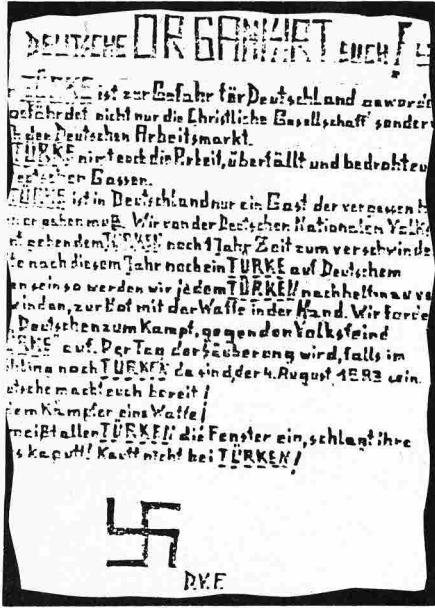 DEUTSCHE ORGANISIERT EUCH!
TÜRKE ist zur Gefahr für Deutschland geword
gefährdet nicht nur die Christliche Gesellschaft sondern
den Deutschen Arbeitsmarkt.
TÜRKE nimt euch die Arbeit, überfällt und bedroht eu
Gassen.
TÜRKE ist in Deutschland nur ein Gast der vergessen
gehen muß. Wir von der Deutschen Nationalen Volks
geben dem TÜRKEN noch 1 Jahr Zeit zum verschwinde
te nach diesem Jahr noch ein TÜRKE auf Deutschem
sein so werden wir jedem TÜRKEN nachhelfen
winden, zur Not mit der Waffe in der Hand. Wir forde
Deutschen zum Kampf, gegen den Volksfeind
auf. Der Tag der Säuberung wird, falls im
noch TÜRKEN da sind, der 4. August 1983 sein.
utsche macht euch bereit!
dem Kämpfer eine Waffe!
meißt allen TÜRKEN die Fenster ein, schlagt ihre
s kaputt! Kauft nicht bei TÜRKEN!